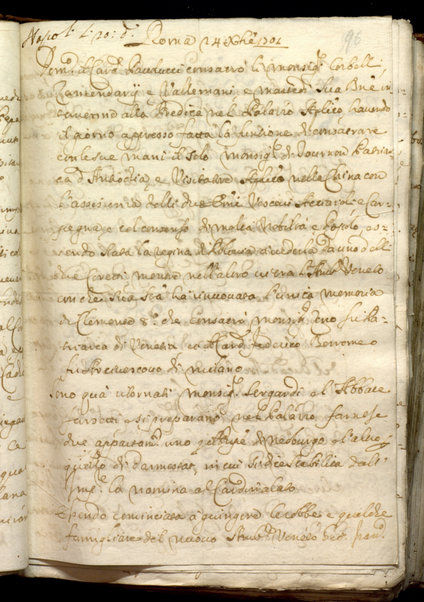 Napoli li 20: d.o Roma 24 Xbre 1701 96
Dom.ca il Card. Paulucci consacrò li Monsig.ri Corbelli
e Vallemani e martedì Sua B.ne in-
tervenne alla Predica nel Palazzo Aplico havendo
il giorno appresso fatta la funzione di consacrare
con le sue mani il solo Monsig.r di Tournon Patriar
ca d'Antiochia, e Visitatore Aplico nella China con
l'assistenza delli due Vescovi e Car-
pegna, e col concorso di molta Nobiltà e Popolo, es-
sendo stata la Regina di Polonia a vederla da uno delli
due Coretti mentre nell'altro vi era l'Amb.r Veneto
con che Sua S.tà ha rinnovata l'unica memoria
di Clemente 8.o che consacrò Monsig. Zeno Pa-
triarca di Venetia, et il Card. Federico Borromeo
fù Arcivescovo di Milano
Sono quà ritornati Monsig.r Sergardi e l'Abbate
e si preparano nel Palazzo Farnese
due appartam.ti uno per il Pnpe di e l'altro
quello di Darmstat, in cui
la nomina al Cardinalato
Essendo cominciata à giungere le robbe e qualche
famigliare del nuovo Amb.r Veneto